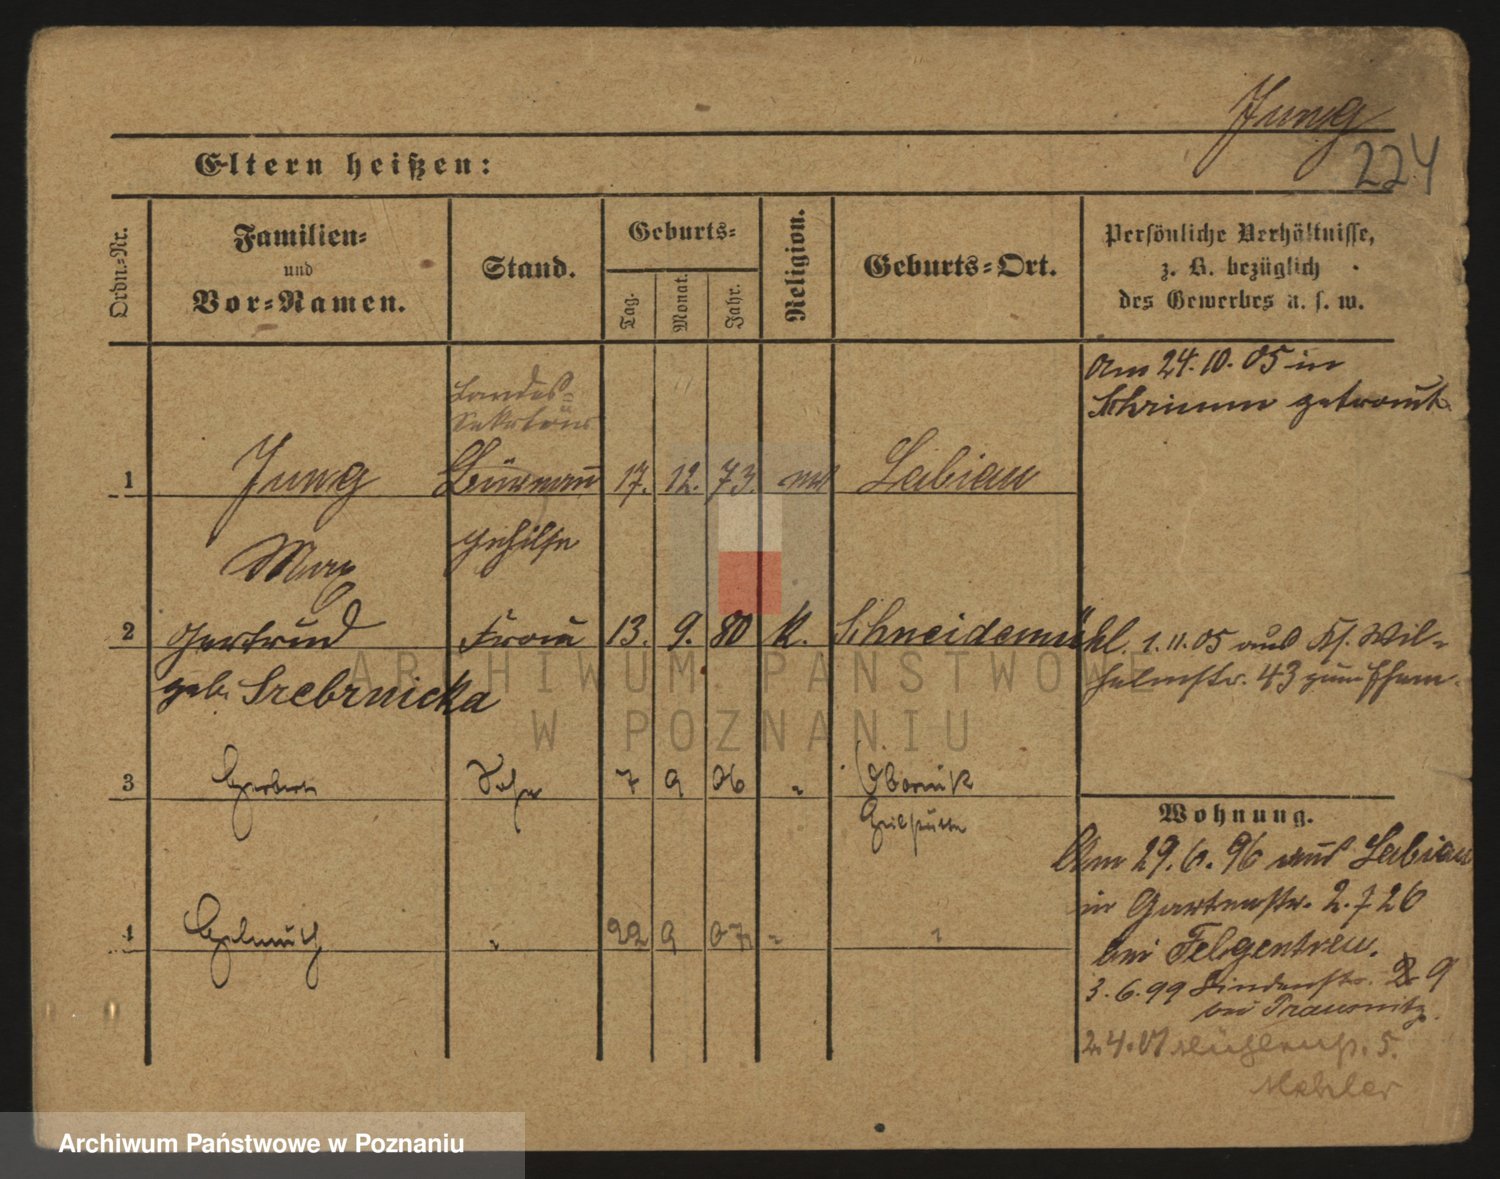 Jung
224
Eltern heißen:
Ordn.-Nr.
Familien-
und
Vor-Namen.
Stand.
Geburts-
Tag.
Monat.
Jahr.
Religion.
Geburts-Ort.
Persönliche Verhältnisse,
z. B. bezüglich
des Gewerbes u. s. w.
Am 24.10.05 in
Schrimm getraut.
Landes
Sekretär
1 Jung Büreau 17. 12. 73. ev Labiau
gehilfe
Max
2 Gertrud Frau 13. 9. 80 k. Schneidemühl. 1.11.05 aus Wil-
helmstr. 43 zum Ehem.
geb. Srebrnicka
3 Herbert Sohn 7 9 06 " Obornik
Wohnung.
Am 29.6.96 aus Labiau
in Gartenstr. 2.
bei Felgentreu.
3.6.99 Lindenstr. 9
bei Prausnitz.
4 Helmuth " 22 9 07 " "
2.4.01 Mühlenstr. 5.
Mehler
ARCHIWUM PAŃSTWOWE
W POZNANIU
Archiwum Państwowe w Poznaniu